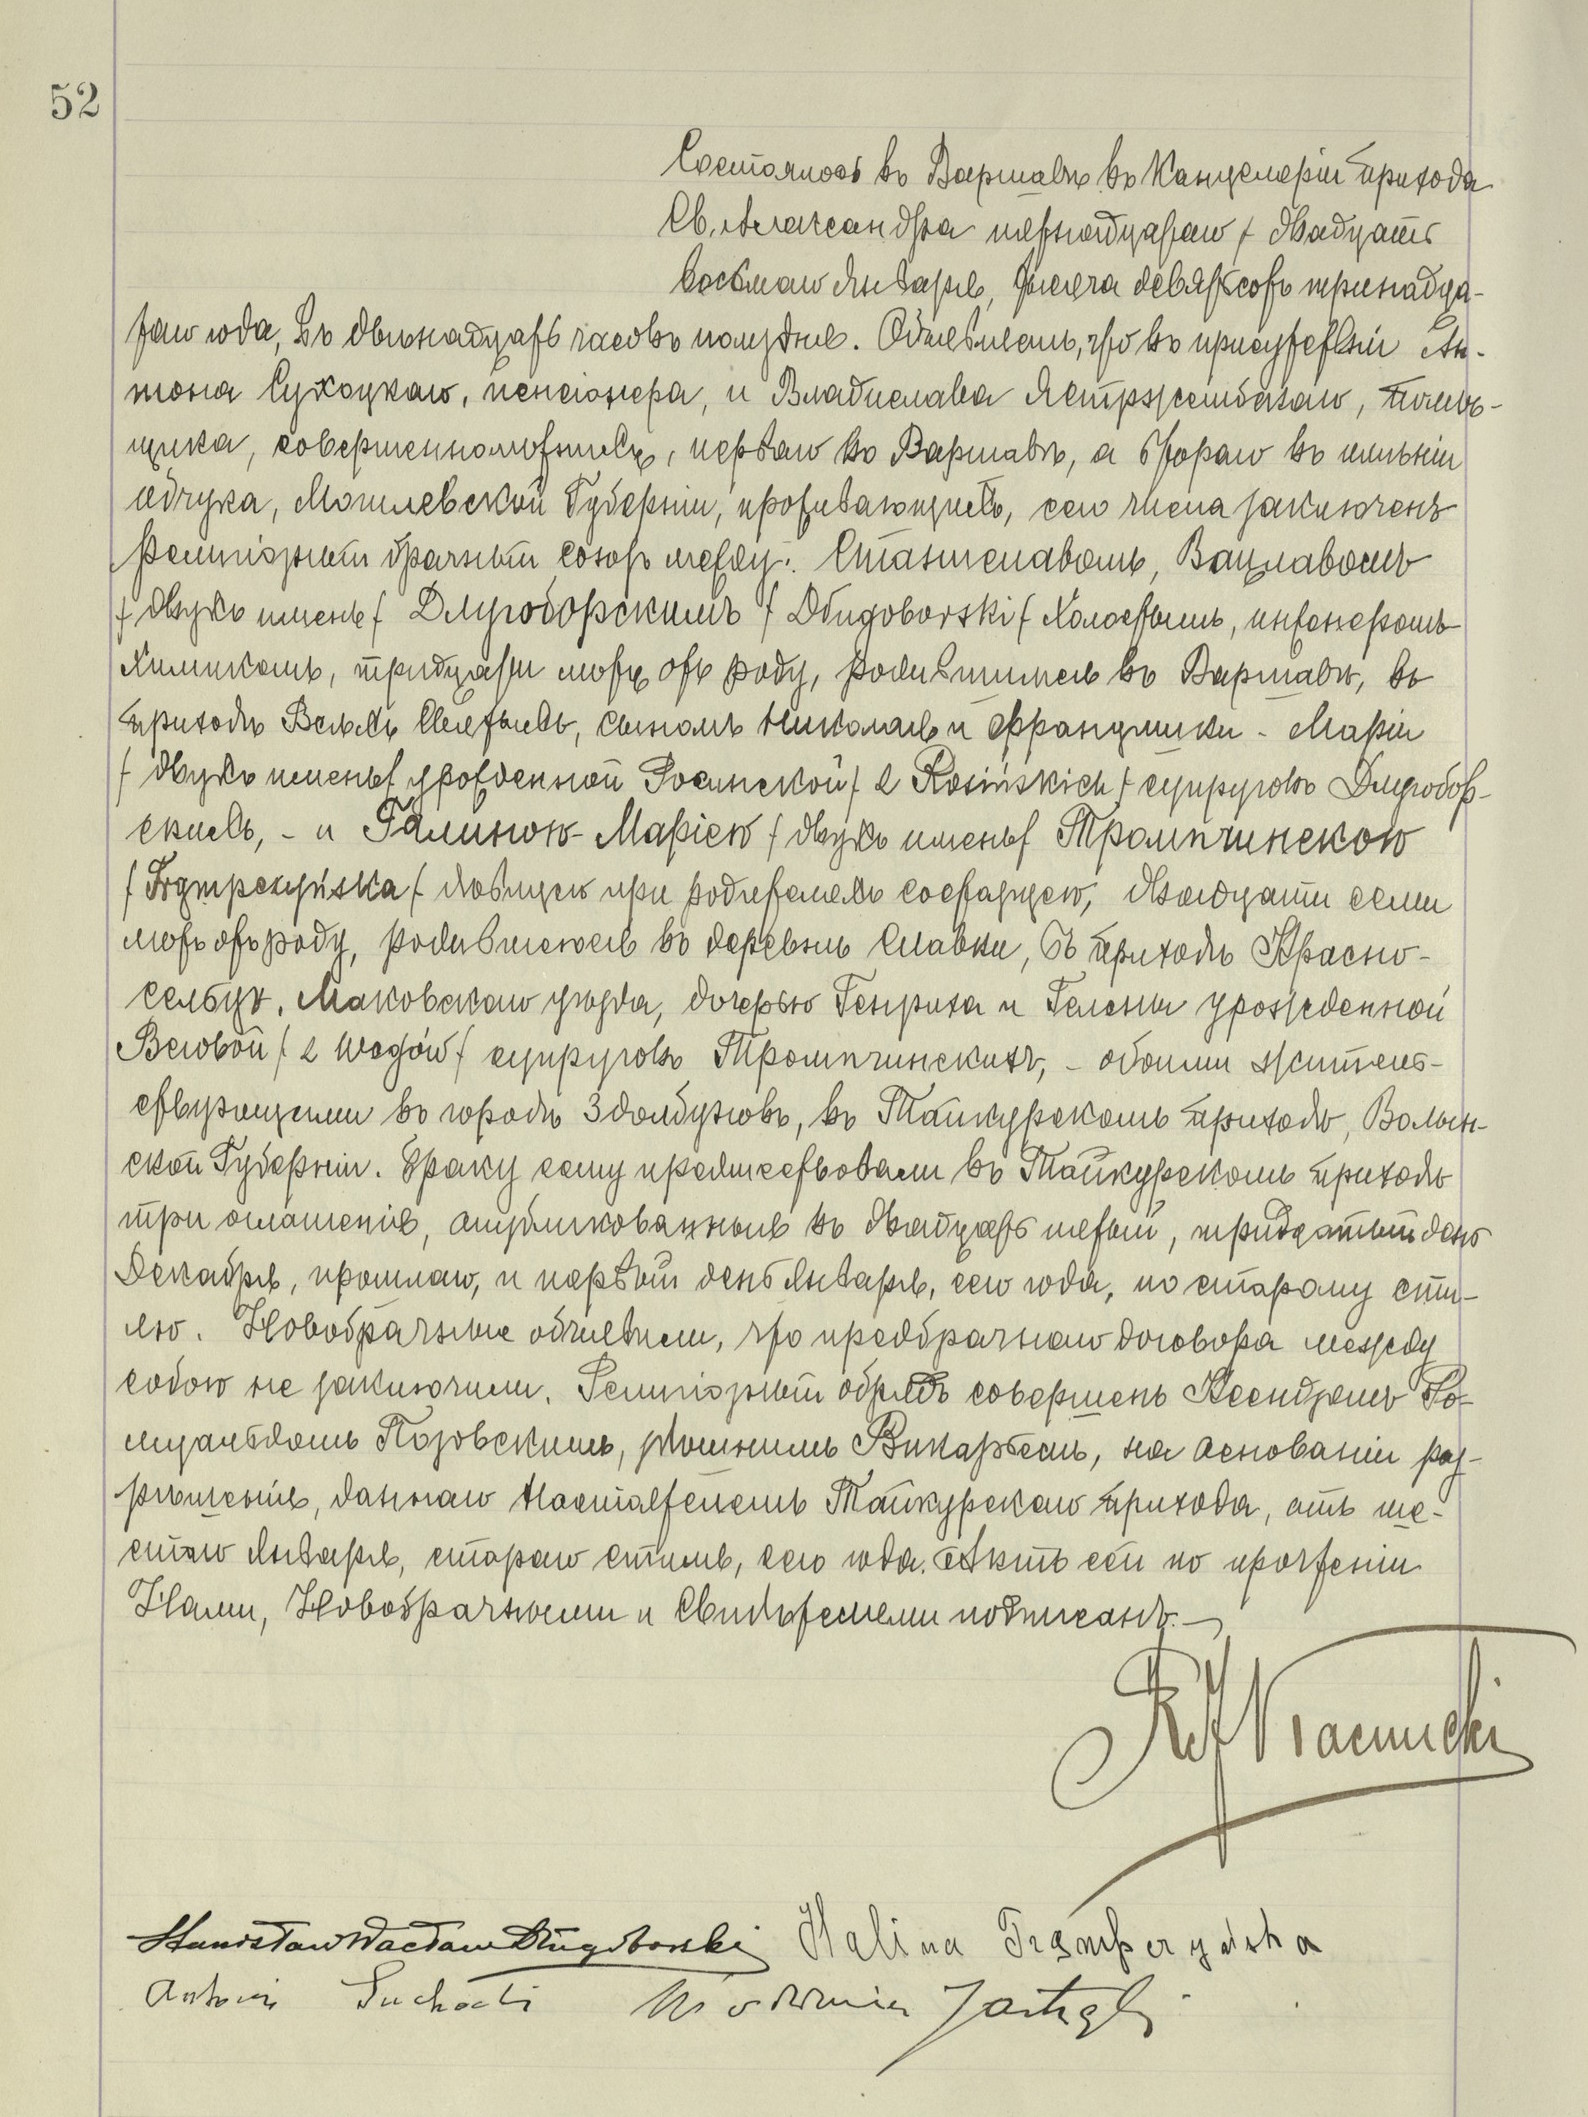 52
Состоялось въ Варшавѣ въ Канцеляріи прихода
Св. Александра пятнадцатаго / двадцать
восьмаго Января, тысяча девятьсотъ тринадца-
таго года, въ двѣнадцать часовъ полудня. Объявляемъ, что въ присутствіи Ан-
тона Сухоцкаго, пенсіонера, и Владислава Ястржембскаго, помѣ-
щика, совершеннолѣтнихъ, перваго въ Варшавѣ, а втораго въ имѣніи
Могилевской Губерніи, проживающихъ, сего числа заключенъ
религіозный брачный союзъ между: Станиславомъ, Вацлавомъ
/ двухъ именъ / Длугоборскимъ / Długoborski / холостымъ, инженеромъ
Химикомъ, тридцати лѣтъ отъ роду, родившимся въ Варшавѣ, въ
приходѣ Всѣхъ Святыхъ, сыномъ Николая и Францишки - Маріи
/ двухъ именъ / урожденной Росинской / z Rosińskich / супруговъ Длугобор-
скихъ, - и Галиною Маріею / двухъ именъ / Тромпчинскою
/ Trąmpczyńska / дѣвицею при родителяхъ состоящею, двадцати семи
лѣтъ отъ роду, родившеюся въ деревнѣ Славки, въ приходѣ Красно-
сельцъ, Маковскаго уѣзда, дочерью Генриха и Гелены урожденной
Веговой / z Wegów / супруговъ Тромпчинскихъ, - обоими житель-
ствующими въ городѣ Здолбуновъ, въ Тайкурскомъ приходѣ, Волын-
ской Губерніи. Браку сему предшествовали въ Тайкурскомъ приходѣ
три оглашенія, опубликованныя въ двадцать шестый, тридцатый день
Декабря, прошлаго, и первый день Января, сего года, по старому сти-
лю. Новобрачные объявили, что предбрачнаго договора между
собою не заключили. Религіозный обрядъ совершенъ Ксендзомъ Ро-
муальдомъ Позовскимъ, здѣшнимъ Викаріемъ, на основаніи раз-
рѣшенія, даннаго Настоятелемъ Тайкурскаго прихода, отъ ше-
стаго Января, стараго стиля, сего года. Актъ сей по прочтеніи
Нами, Новобрачными и Свидѣтелями подписанъ. —
Stanisław Wacław Długoborski Halina Trąmpczyńska
Antoni Suchocki